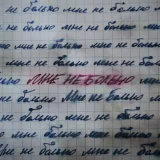 мне не больно мне не больно
не больно мне не больно мне
больно мне не больно мне не
мне не больно мне не больно
МНЕ НЕ БОЛЬНО
не больно Мне не больно
больно мне не больно мне
не больно мне не больно
мне не больно мне не больно